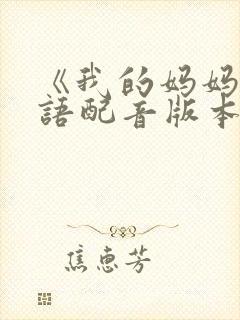 《我的妈妈
語配音版本
焦惠芳